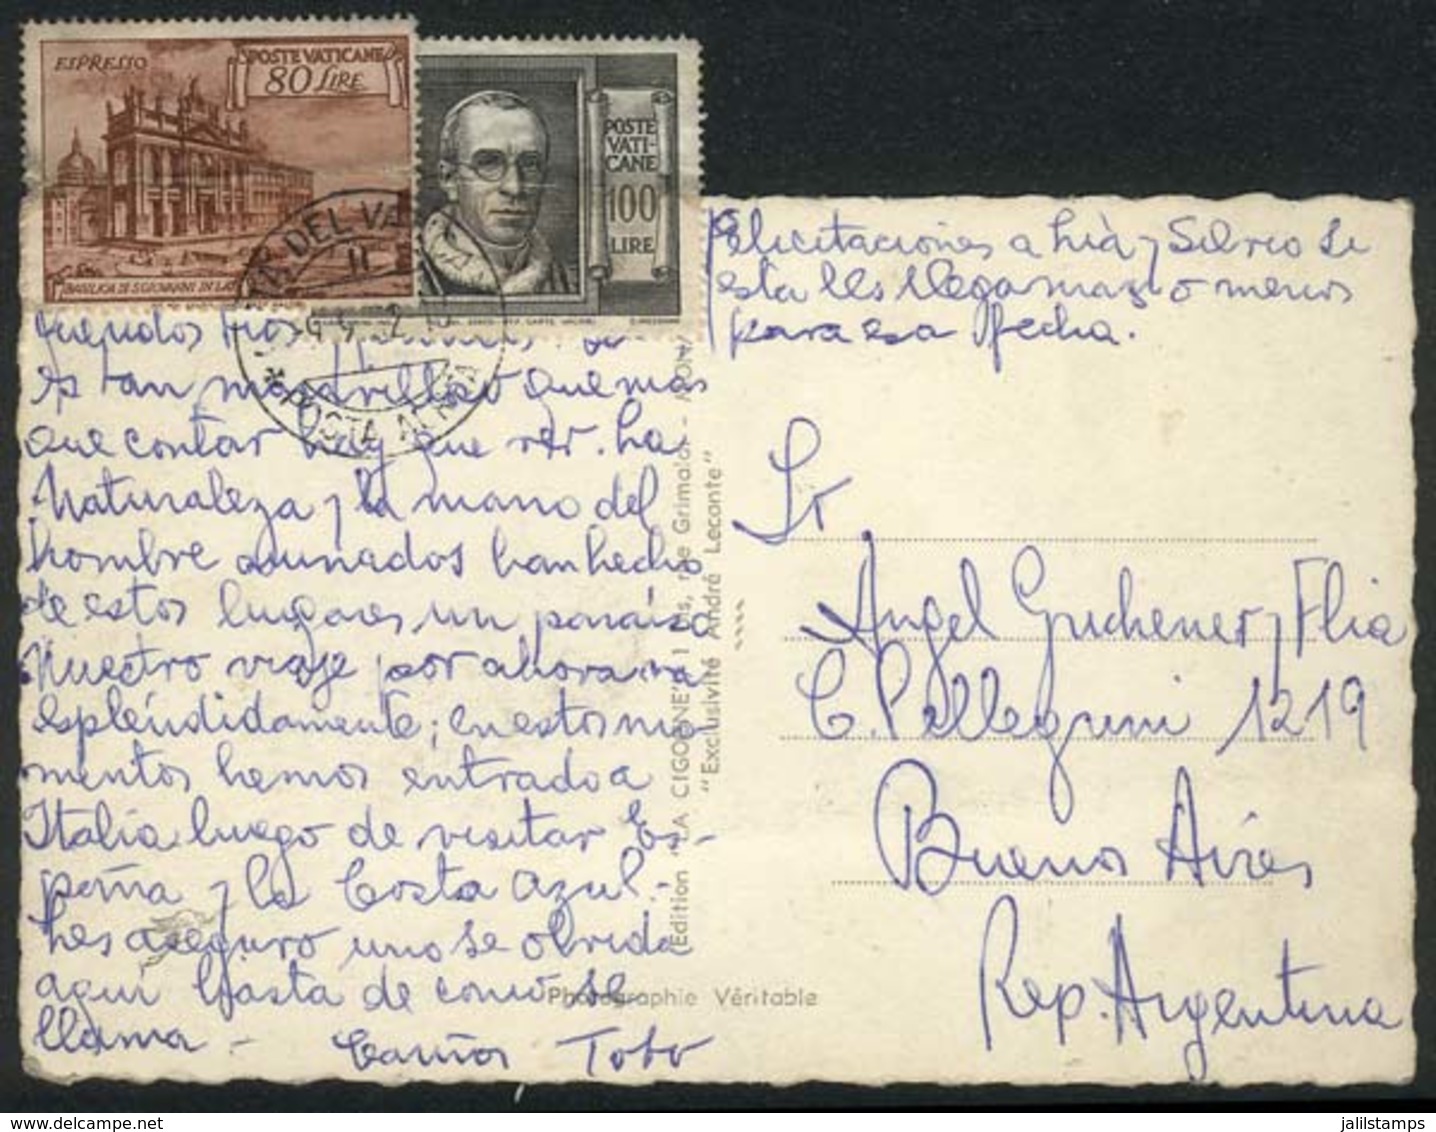 ESPRESSO
POSTE VATICANE
80 LIRE
BASILICA DI S. GIOVANNI IN LAT
POSTE
VATI-
CANE
100
LIRE
DEL VA
POSTA AEREA
Felicitaciones a Lia y Silvio si
esta les llega mas o menos
para esa fecha.
Queridos tios
es tan maravilloso que mas
que contar hay que ver. La
Naturaleza y la mano del
hombre aunados han hecho
de estos lugares un paraíso
Nuestro viaje por ahora va
espléndidamente; en estos mo-
mentos hemos entrado a
Italia luego de visitar Es-
paña y la Costa Azul.-
Les aseguro uno se olvida
aqui hasta de como se
llama -
Cariños Toto
Edition "LA CIGOGNE", 1 bis, rue Grimaldi - MON
"Exclusivité André Leconte"
Photographie Véritable
Sr
Angel Guchener y Flia
C. Pellegrini 1219
Buenos Aires
Rep. Argentina
jalilstamps